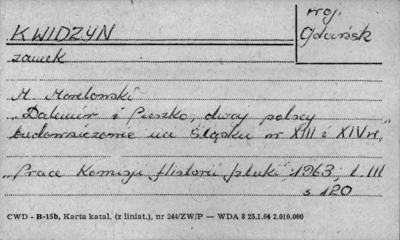 KWIDZYN
woj.
Gdańsk
zamek
M. Morelowski
"Dalemir i Pieszko, dwaj polscy
budowniczowie na Śląsku w XIII i XIV w."
"Prace Komisji Historii Sztuki", 1963, t. III
s. 120
CWD - B-15b, Karta katal. (z liniat.), nr 244/ZW/P — WDA 8 25.1.64 2.010.000